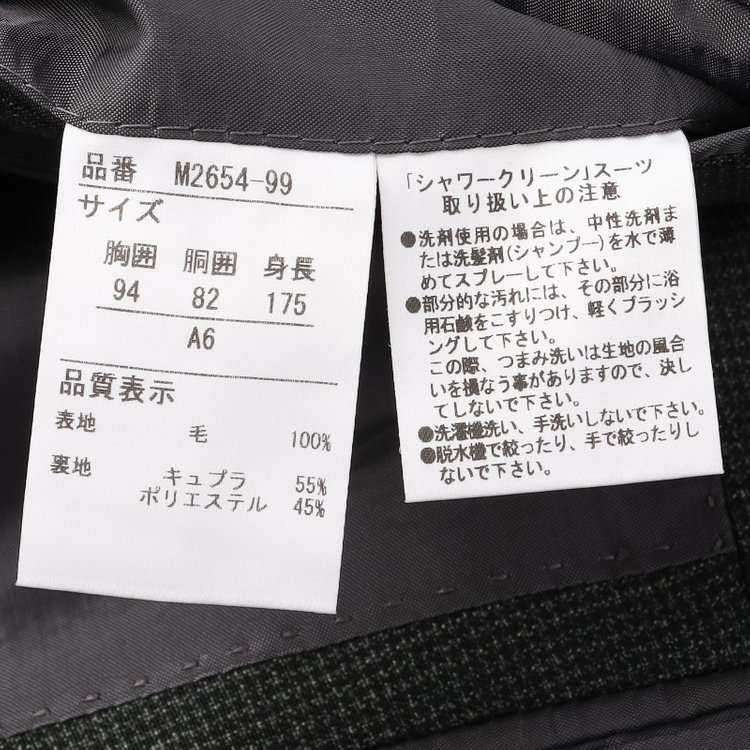 品番 M2654-99
サイズ
胸囲 胴囲 身長
94 82 175
A6
品質表示
表地 毛 100%
裏地 キュプラ 55%
ポリエステル 45%
「シャワークリーン」スーツ
取り扱い上の注意
●洗剤使用の場合は、中性洗剤ま
たは洗髪剤(シャンプー)を水で薄
めてスプレーして下さい。
●部分的な汚れには、その部分に浴
用石鹸をこすりつけ、軽くブラッシ
ングして下さい。
この際、つまみ洗いは生地の風合
いを損なう事がありますので、決し
てしないで下さい。
●洗濯機洗い、手洗いしないで下さい。
●脱水機で絞ったり、手で絞ったりし
ないで下さい。